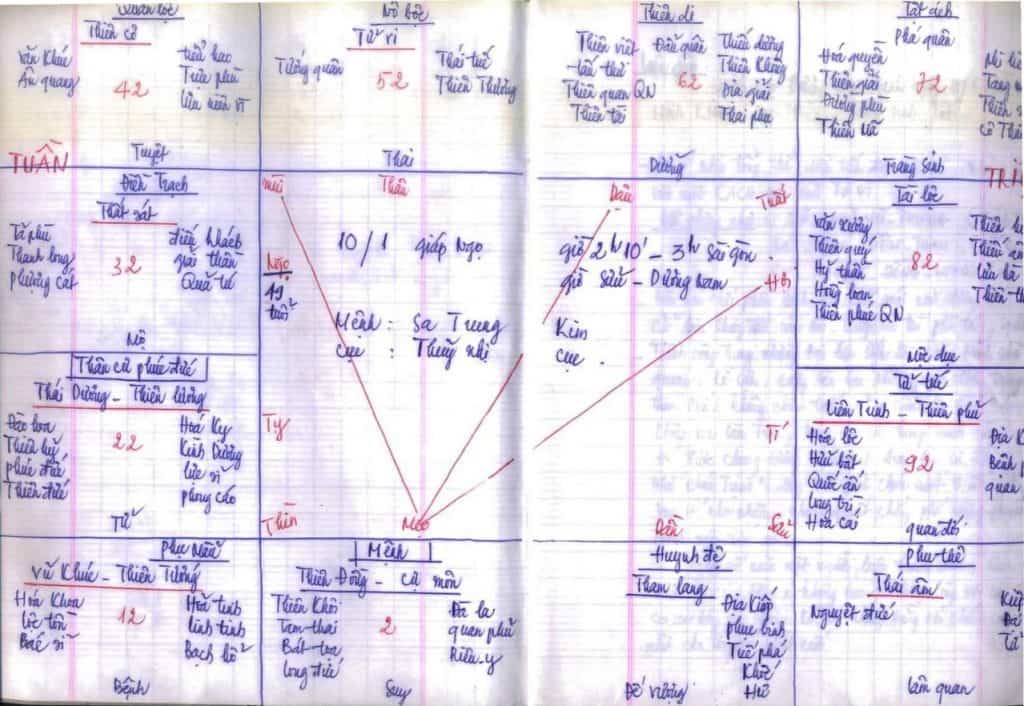 Quan lộc
Thiên cơ
Văn Khúc
Ân quang
42
tiểu hao
Trực phù
lưu niên vt
Tuyệt
TUẦN
Nô bộc
Tử vi
Tướng quân
52
Thái tuế
Thiên Thương
Thai
Thiên di
Thiên việt
tấu thư
Thiên quan QN
Thiên tài
Đẩu quân
62
Thiếu dương
Thiên Không
Địa giải
Thai phụ
Dưỡng
Tật ách
Phá quân
Hoá quyền
Thiên giải
Đường phù
Thiên mã
72
Tràng sinh
Điền Trạch
Thất sát
Tả phù
Thanh long
Phượng các
32
điếu khách
giải thần
Quả tú
Mộ
mùi
Thân
Dậu
Tuất
Ngọ
49
tuổi
10/1 giáp Ngọ
giờ 2h10' - 3h sài gòn.
giờ sửu - Dương nam
Mệnh : Sa Trung Kim
cục : Thuỷ nhị cục.
Hợi
Tài lộc
Văn xương
Thiên quý
Hỷ thần
Hồng loan
Thiên phúc QN
82
Mộc dục
Thân cư phúc đức
Thái Dương - Thiên lương
Đào hoa
Thiên hỷ
phúc đức
Thiên đức
22
Hoá Kỵ
Kình Dương
lực sĩ
phong cáo
Tử
Tỵ
Tí
Thìn
Mão
Dần
Sửu
Tử tức
Liêm Trinh - Thiên phủ
Hoá lộc
Hữu bật
Quốc ấn
long trì
Hoa cái
92
quan đới
Phụ Mẫu
Vũ Khúc - Thiên Tướng
Hoá Khoa
lộc tồn
Bác sĩ
12
Hoả tinh
linh tinh
Bạch hổ
Bệnh
Mệnh
Thiên Đồng - cự môn
Thiên Khôi
Tam thai
Bát toạ
long đức
2
Đà la
quan phủ
Riêu-y
Suy
Huynh đệ
Tham lang
Địa Kiếp
phục binh
Tuế phá
Khốc
Hư
Đế vượng
Phu thê
Thái âm
Nguyệt đức
lâm quan